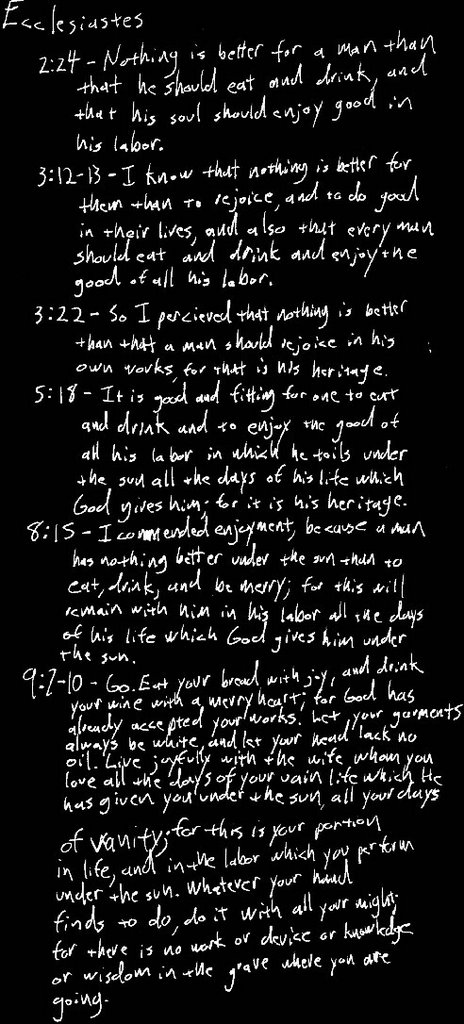 Ecclesiastes
2:24 - Nothing is better for a man than
that he should eat and drink, and
that his soul should enjoy good in
his labor.
3:12-13 - I know that nothing is better for
them than to rejoice, and to do good
in their lives, and also that every man
should eat and drink and enjoy the
good of all his labor.
3:22 - So I percieved that nothing is better
than that a man should rejoice in his
own works, for that is his heritage.
5:18 - It is good and fitting for one to eat
and drink and to enjoy the good of
all his labor in which he toils under
the sun all the days of his life which
God gives him; for it is his heritage.
8:15 - I commended enjoyment, because a man
has nothing better under the sun than to
eat, drink, and be merry; for this will
remain with him in his labor all the days
of his life which God gives him under
the sun.
9:7-10 - Go. Eat your bread with joy, and drink
your wine with a merry heart; for God has
already accepted your works. Let your garments
always be white, and let your head lack no
oil. Live joyfully with the wife whom you
love all the days of your vain life which He
has given you under the sun, all your days
of vanity; for this is your portion
in life, and in the labor which you perform
under the sun. Whatever your hand
finds to do, do it with all your might;
for there is no work or device or knowledge
or wisdom in the grave where you are
going.